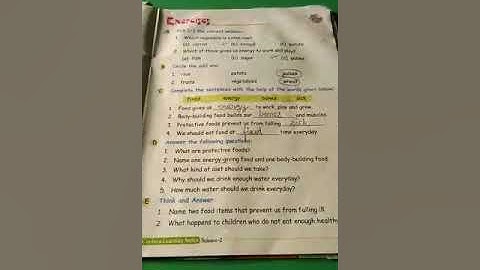 Exercises
A Tick (✓) the correct answer:
1. Which vegetable is eaten raw?
(a) carrot (b) brinjal (c) potato
2. Which of these gives us energy to work and play?
(a) fish (b) sugar (c) pulses
B Circle the odd one:
1. rice potato pulses
2. fruits vegetables bread
C Complete the sentences with the help of the words given below:
Food energy bones sick
1. Food gives us energy to work, play and grow.
2. Body-building food builds our bones and muscles.
3. Protective foods prevent us from falling sick
4. We should eat food at fixed time everyday.
D Answer the following questions:
1. What are protective foods?
2. Name one energy-giving food and one body-building food.
3. What kind of diet should we take?
4. Why should we drink enough water everyday?
5. How much water should we drink everyday?
E Think and Answer
1. Name two food items that prevent us from falling ill.
2. What happens to children who do not eat enough health
Science-2